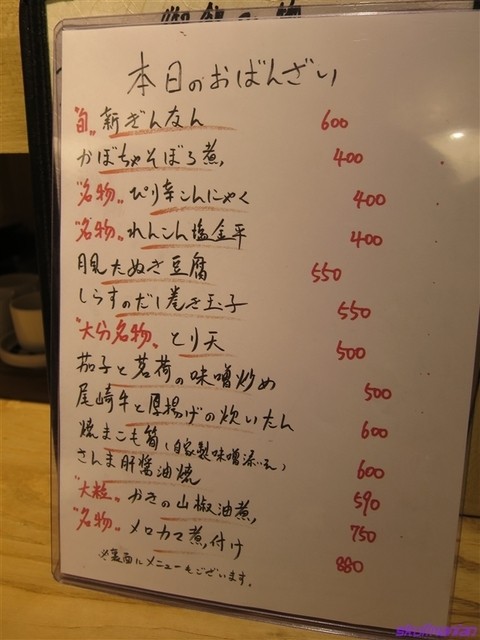 本日のおばんざい
"旬" 新ぎんなん 600
かぼちゃそぼろ煮 400
"名物" ぴり辛こんにゃく 400
"名物" れんこん塩金平 400
月見たぬき豆腐 550
しらすのだし巻き玉子 550
"大分名物" とり天 500
茄子と茗荷の味噌炒め 500
尾崎牛と厚揚げの炊いたん 600
焼まこも筍(自家製味噌添え) 600
さんま肝醤油焼 590
"大粒" かきの山椒油煮 750
"名物" メロカマ煮付け 880
※裏面にメニューもございます。